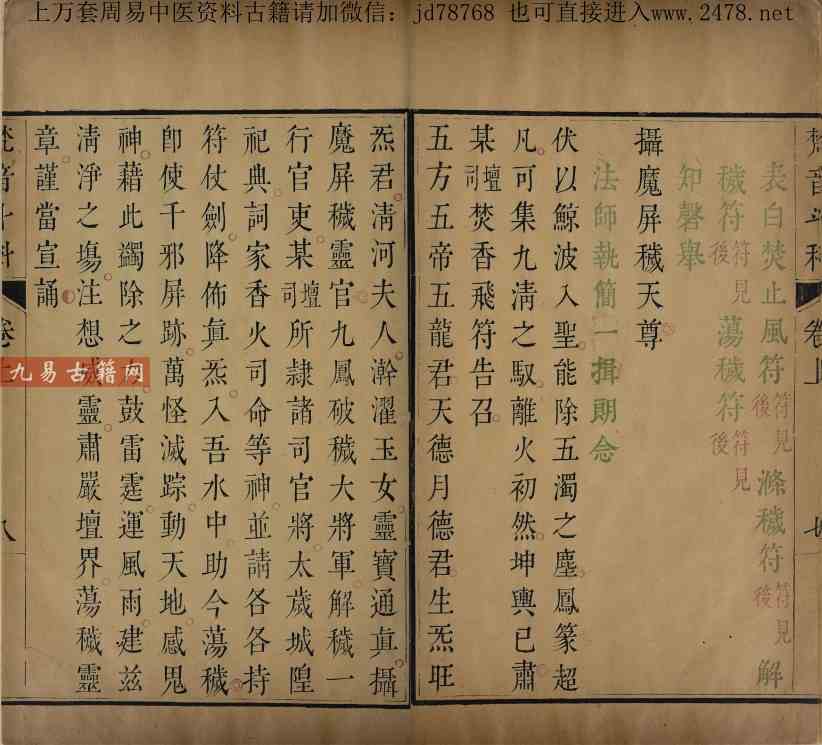 上万套周易中医资料古籍请加微信：jd78768 也可直接进入www.2478.net
表白焚止風符符見後 滌穢符符見後 解
穢符符見後 蕩穢符符見後
知磬舉
攝魔屏穢天尊
法師執簡一揖朗念
伏以鯨波入聖能除五濁之塵鳳篆超
凡可集九清之馭離火初然坤輿已肅
某壇司焚香飛符告召
五方五帝五龍君天德月德君生炁旺
炁君清河夫人澣濯玉女靈寶通真攝
魔屏穢靈官九鳳破穢大將軍解穢一
行官吏某壇司所隸諸司官將太歲城隍
祀典詞家香火司命等神並請各各持
符仗劍降佈真炁入吾水中助今蕩穢
卽使千邪屏跡萬怪滅踪動天地感鬼
神藉此蠲除之鼓雷霆運風雨建茲
清淨之塲注想靈肅嚴壇界蕩穢靈
章謹當宣誦
梵音斗科 卷上
八
九易古籍网